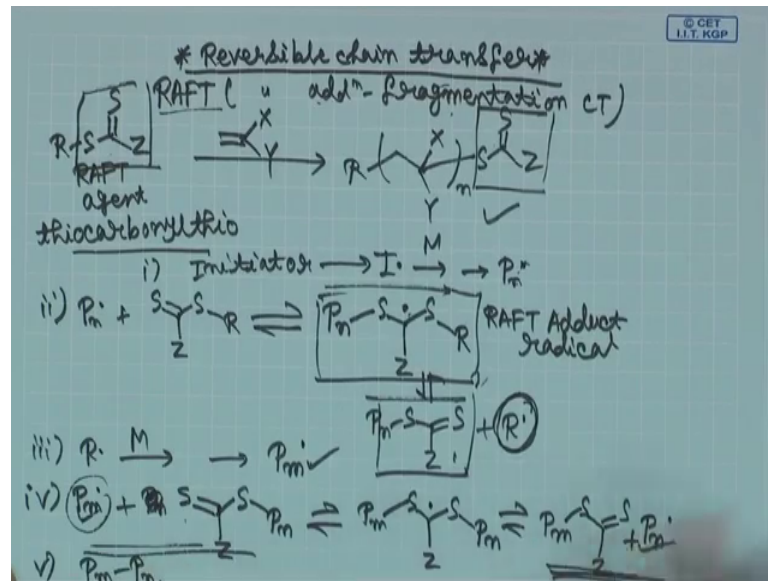 © CET
I.I.T. KGP
* Reversible chain transfer *
RAFT ( " addⁿ- fragmentation CT)
S
R-S Z
X
Y
R ( X Y )n S S Z
RAFT
agent
thiocarbonylthio
i) Initiator → I• M → → Pn•
ii) Pn• + S S-R Z ⇌ Pn-S • S R Z RAFT Adduct
radical
Pn-S S Z + R•
iii) R• M → → Pm•
iv) Pm• + S S-Pn Z ⇌ Pm S • S Pn Z ⇌ Pm S S Z + Pn•
v) Pm-Pn